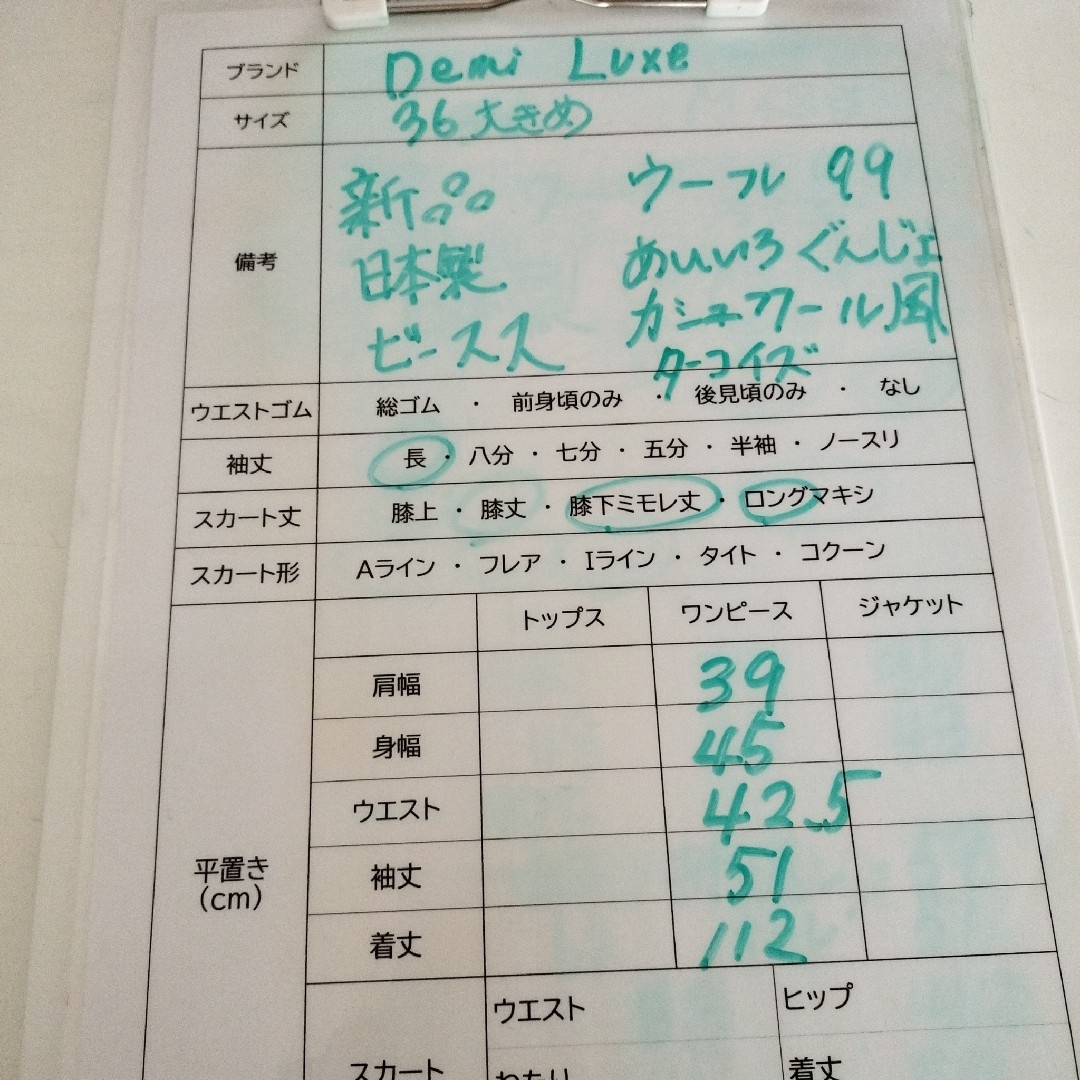 ブランド Demi Luxe
サイズ 36 大きめ
備考
新品 ウール 99
日本製 あいいろ ぐんじょ
ピース カシュクール風
ターコイズ
ウエストゴム 総ゴム ・ 前身頃のみ ・ 後見頃のみ ・ なし
袖丈 長 ・ 八分 ・ 七分 ・ 五分 ・ 半袖 ・ ノースリ
スカート丈 膝上 ・ 膝丈 ・ 膝下ミモレ丈 ・ ロングマキシ
スカート形 Aライン ・ フレア ・ Iライン ・ タイト ・ コクーン
トップス ワンピース ジャケット
平置き
(cm)
肩幅 39
身幅 45
ウエスト 42.5
袖丈 51
着丈 112
ウエスト ヒップ
スカート わたり 着丈